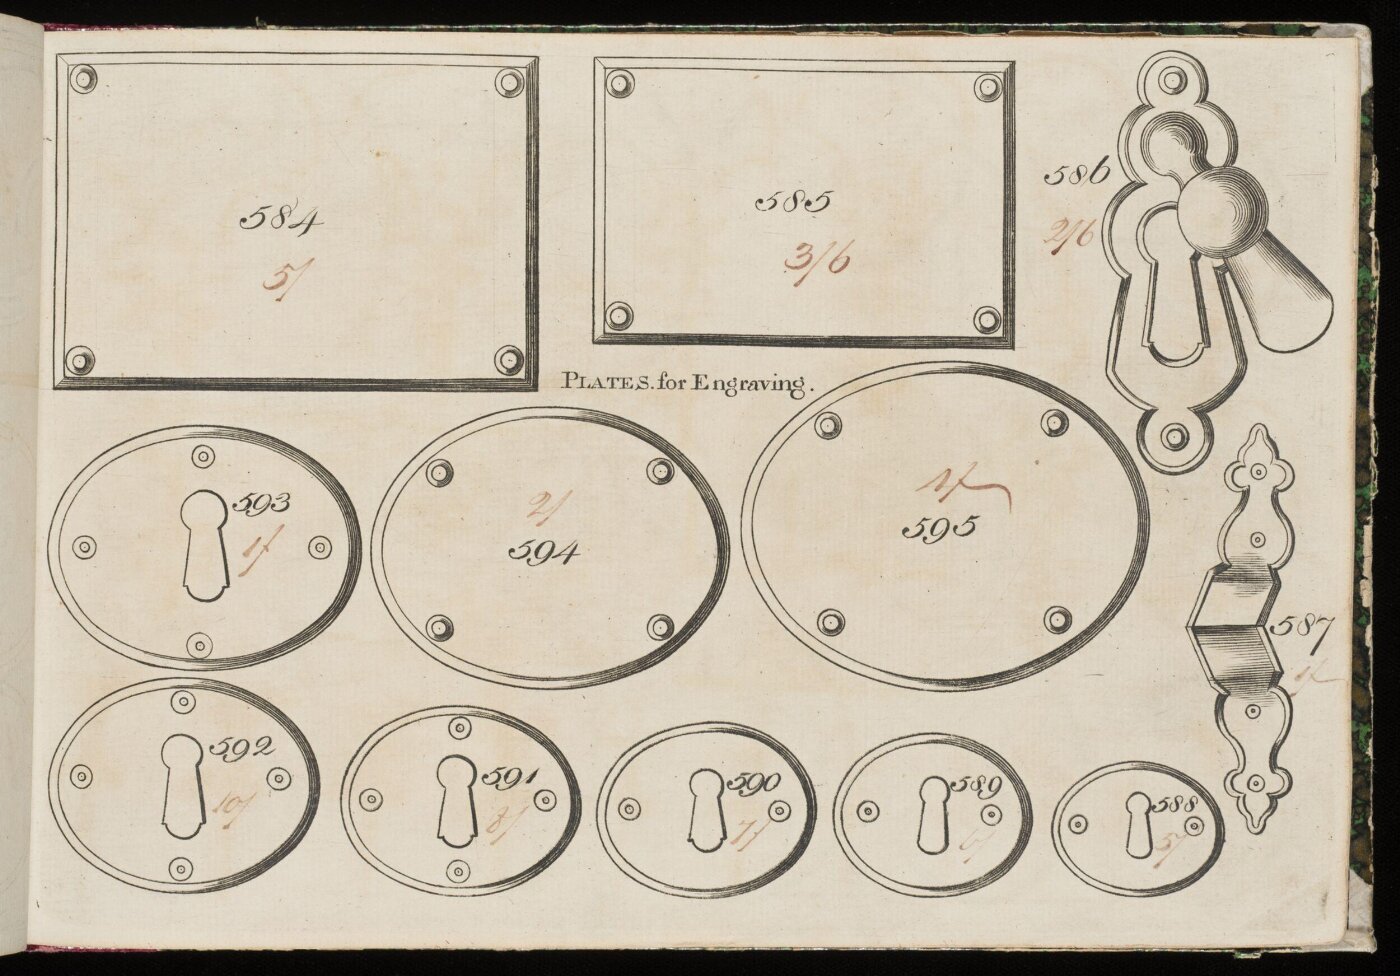 584
5/
585
3/6
586
2/6
PLATES. for Engraving.
593
594
2/
595
587
592
10/
591
8/
590
7/
589
6/
588
5/